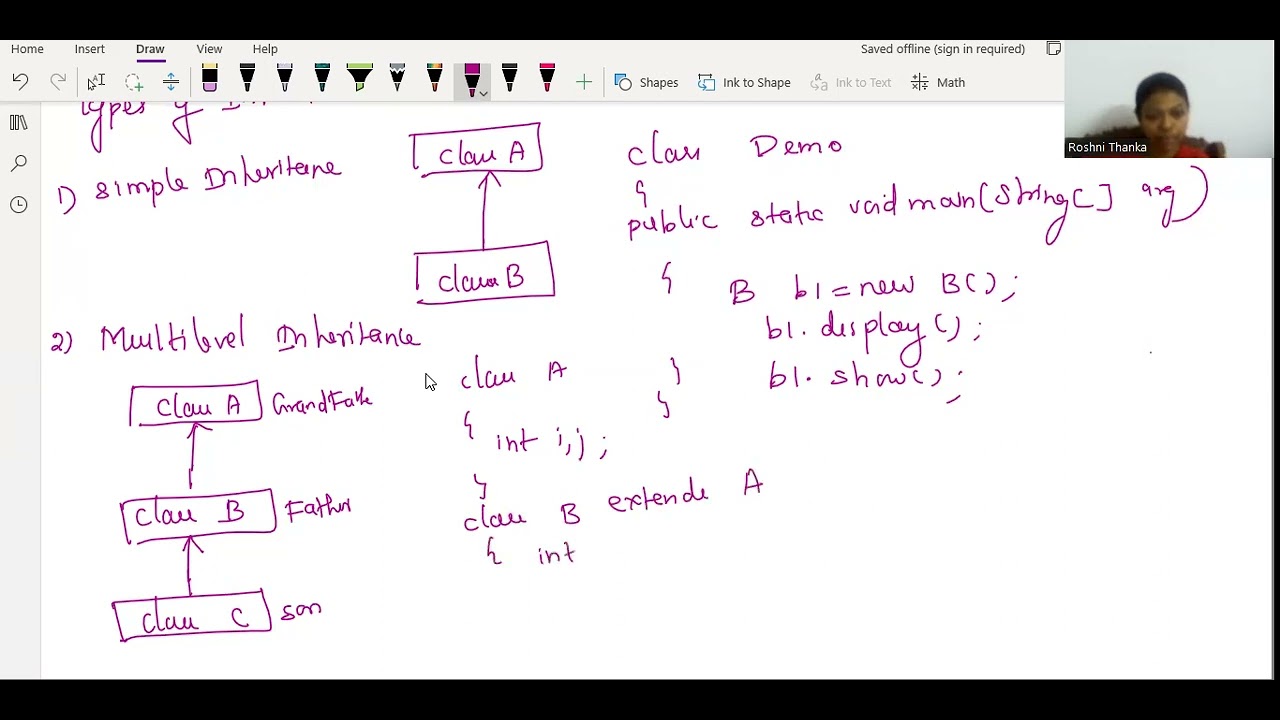 Home Insert Draw View Help Saved offline (sign in required)
Shapes Ink to Shape Ink to Text Math
Roshni Thanka
Types of
1) Simple Inheritance
class A
class B
class Demo
{
public static void main(String[] arg)
{
B b1 = new B();
b1. display();
b1. show();
}
}
2) Multilevel Inheritance
class A GrandFathe
class B Father
class C son
class A
{
int i,j ;
}
class B extends A
{ int